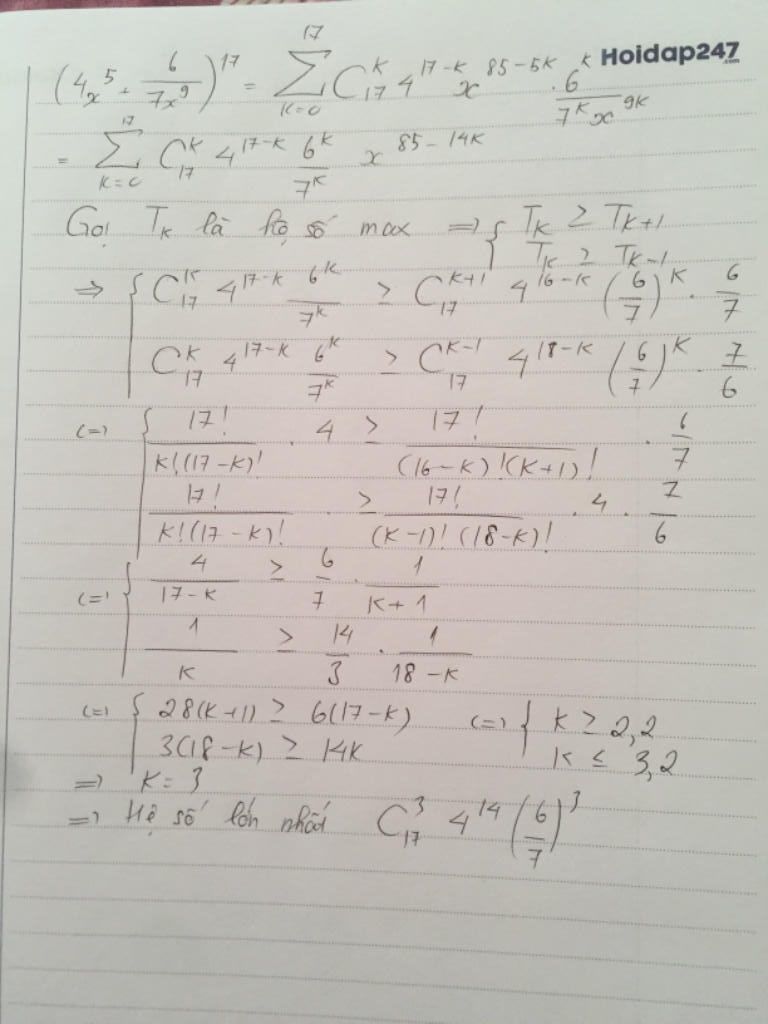 Hoidap247.com
(4x^5 + 6/(7x^9))^17 = ∑_{K=0}^{17} C_17^K 4^{17-K} x^{85-5K} . 6^K/(7^K x^{9K})
= ∑_{K=0}^{17} C_17^K 4^{17-K} 6^K/7^K x^{85-14K}
Gọi T_K là hệ số max => { T_K ≥ T_{K+1}
T_K ≥ T_{K-1}
=> { C_17^K 4^{17-K} 6^K/7^K ≥ C_17^{K+1} 4^{16-K} (6/7)^K . 6/7
C_17^K 4^{17-K} 6^K/7^K ≥ C_17^{K-1} 4^{18-K} (6/7)^K . 7/6
(=) { 17!/(K!(17-K)!) . 4 ≥ 17!/((16-K)!(K+1)!) . 6/7
17!/(K!(17-K)!) . ≥ 17!/((K-1)!(18-K)!) . 4 . 7/6
(=) { 4/(17-K) ≥ 6/7 . 1/(K+1)
1/K ≥ 14/3 . 1/(18-K)
(=) { 28(K+1) ≥ 6(17-K) (=) { K ≥ 2,2
3(18-K) ≥ 14K K ≤ 3,2
=> K = 3
=> Hệ số lớn nhất C_17^3 4^14 (6/7)^3